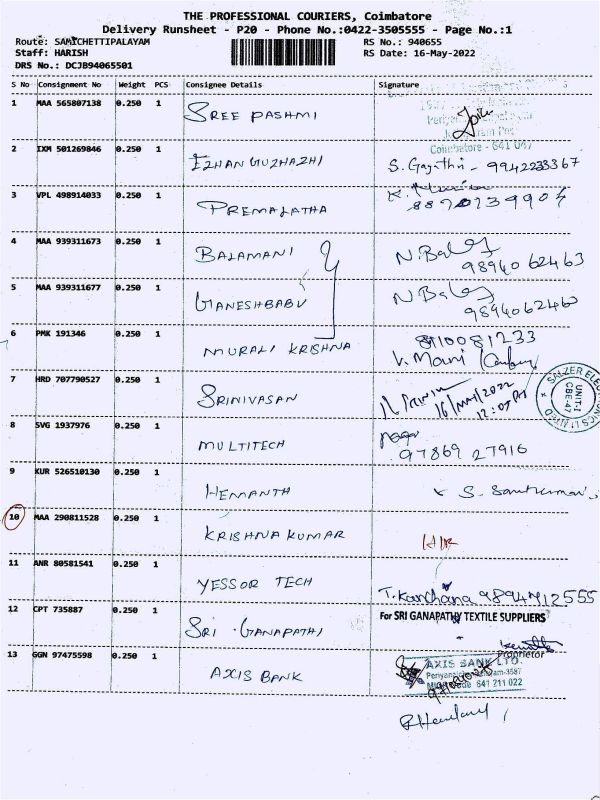 THE PROFESSIONAL COURIERS, Coimbatore
Delivery Runsheet - P20 - Phone No.:0422-3505555 - Page No.:1
Route: SAMICHETTIPALAYAM RS No.: 940655
Staff: HARISH RS Date: 16-May-2022
DRS No.: DCJB94065501
S No Consignment No Weight PCS Consignee Details Signature
1 MAA 565807138 0.250 1 SREE PASHMI
Coimbatore - 641 047
2 IXM 501269846 0.250 1 EZHAN GUZHAZHI S. Gayathri - 9942233367
3 VPL 498914033 0.250 1 PREMALATHA
4 MAA 939311673 0.250 1 BALAMANI N. Balaj
9894062463
5 MAA 939311677 0.250 1 GANESHBABU N Balaj
9894062463
6 PMK 191346 0.250 1 MURALI KRISHNA V. Mani
7 HRD 707790527 0.250 1 SRINIVASAN 16/MAY/2022
SALZER ELECTRONICS LIMITED UNIT-I CBE-47
8 SVG 1937976 0.250 1 MULTITECH
97869 27916
9 KUR 526510130 0.250 1 HEMANTH
10 MAA 290811528 0.250 1 KRISHNA KUMAR
11 ANR 80581541 0.250 1 YESSOR TECH T. Kanchana 9894712555
12 CPT 735887 0.250 1 SRI GANAPATHI For SRI GANAPATHY TEXTILE SUPPLIERS
Proprietor
13 GGN 97475598 0.250 1 AXIS BANK AXIS BANK LTD.
641 211 022